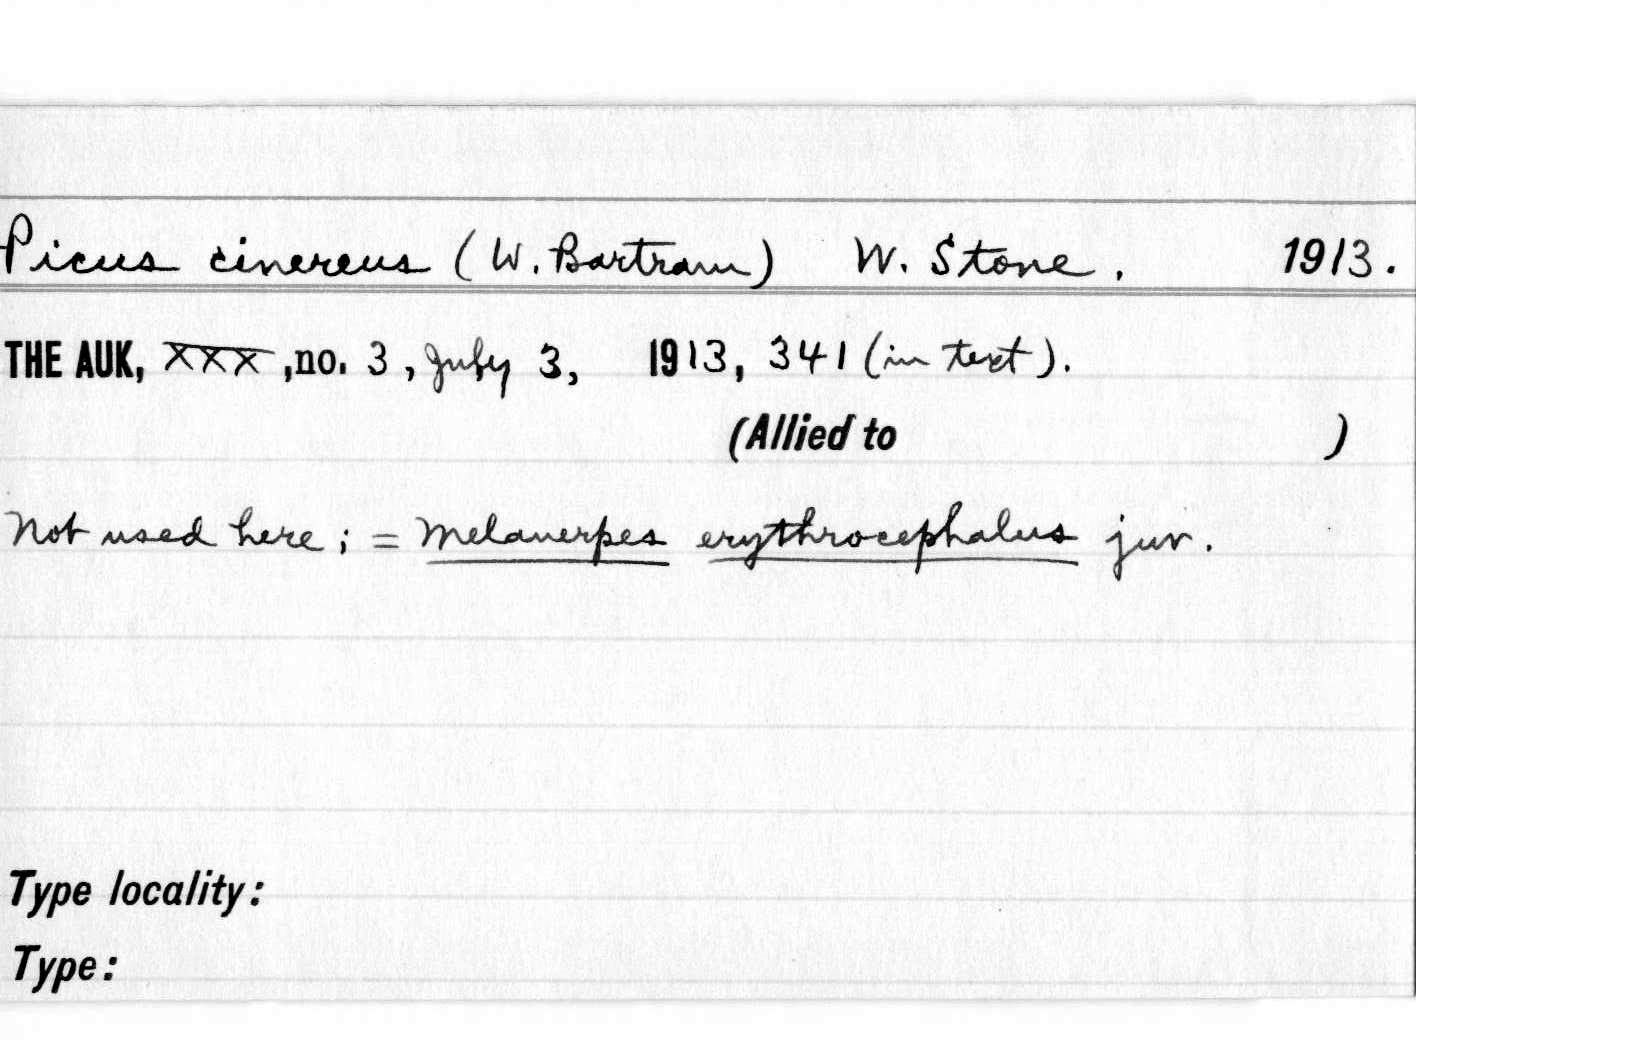 Picus cinereus (W. Bartram) W. Stone. 1913.
THE AUK, XXX, no. 3, July 3, 1913, 341 (in text).
(Allied to )
Not used here; = Melanerpes erythrocephalus juv.
Type locality:
Type: